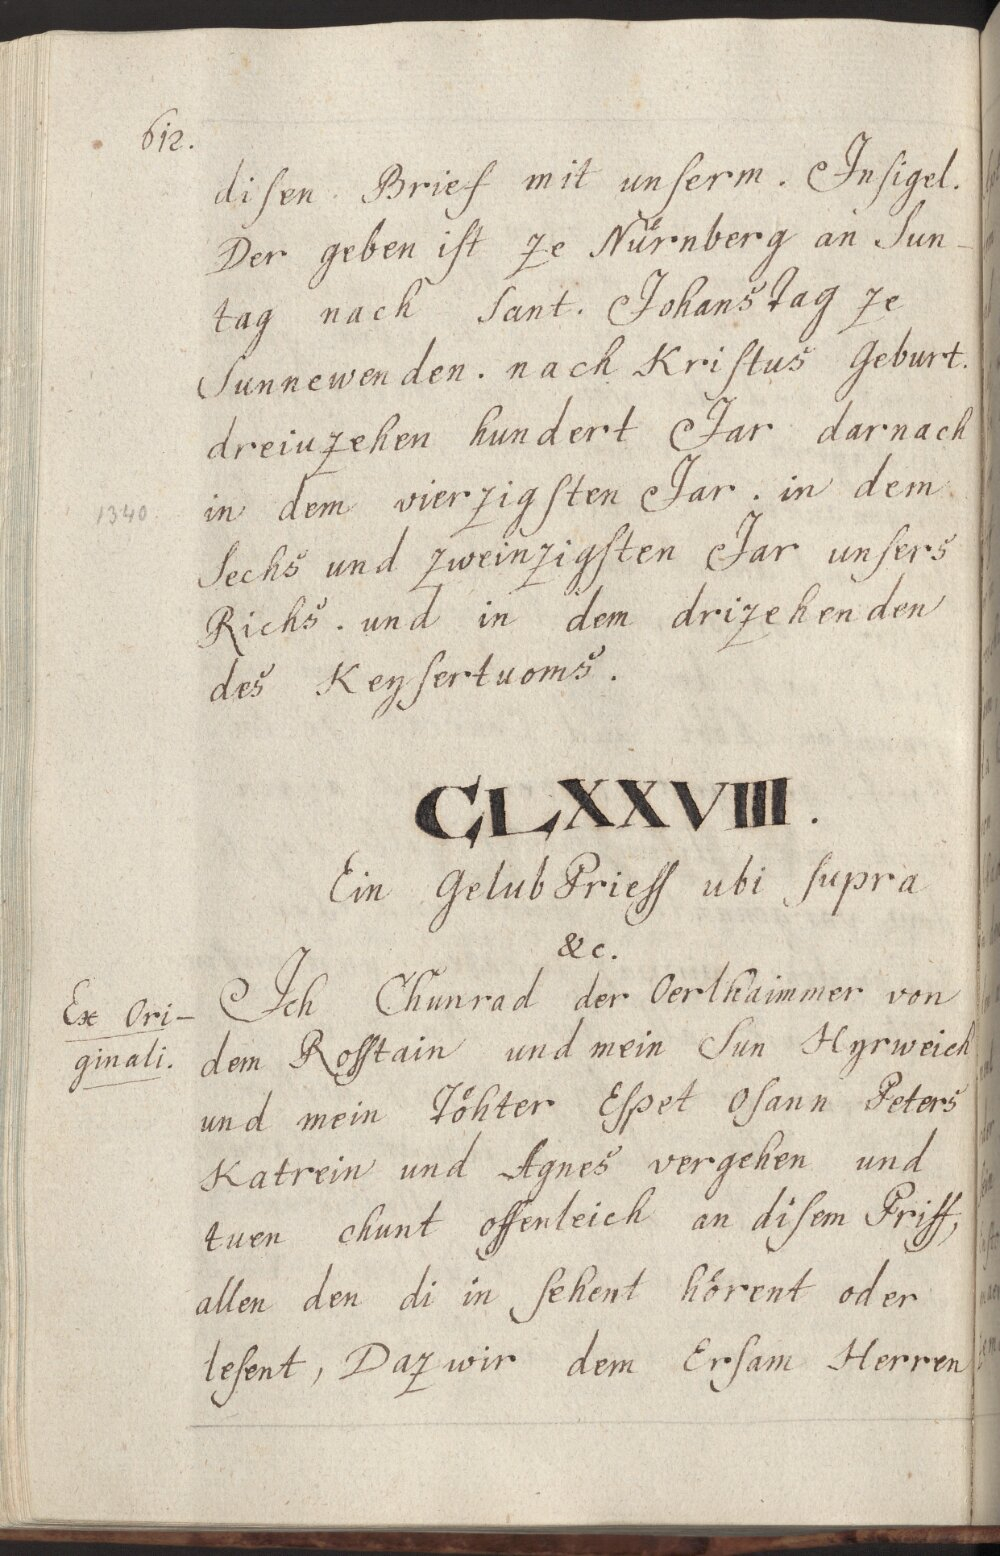 612.
disen Brief mit unserm. Insigel.
Der geben ist ze Nuͤrnberg an Sun-
tag nach Sant. Johans Tag ze
Sunnewenden. nach Kristus Geburt.
dreiuzehen hundert Jar darnach
1340
in dem vierzigsten Jar. in dem
Sechs und zweinzigsten Jar unsers
Richs. und in dem drizehenden
des Keysertuoms.
CLXXVIII.
Ein GelubPrieff ubi supra
&c.
Ex Ori-
ginali.
Ich Chunrad der Oerlhaimmer von
dem Rosstain und mein Sun Hyrweich
und mein Töhter Espet Osann Peters
Katrein und Agnes vergehen und
tuen chunt offenleich an disem Priff,
allen den di in sehent hörent oder
lesent, Daz wir dem Ersam Herren